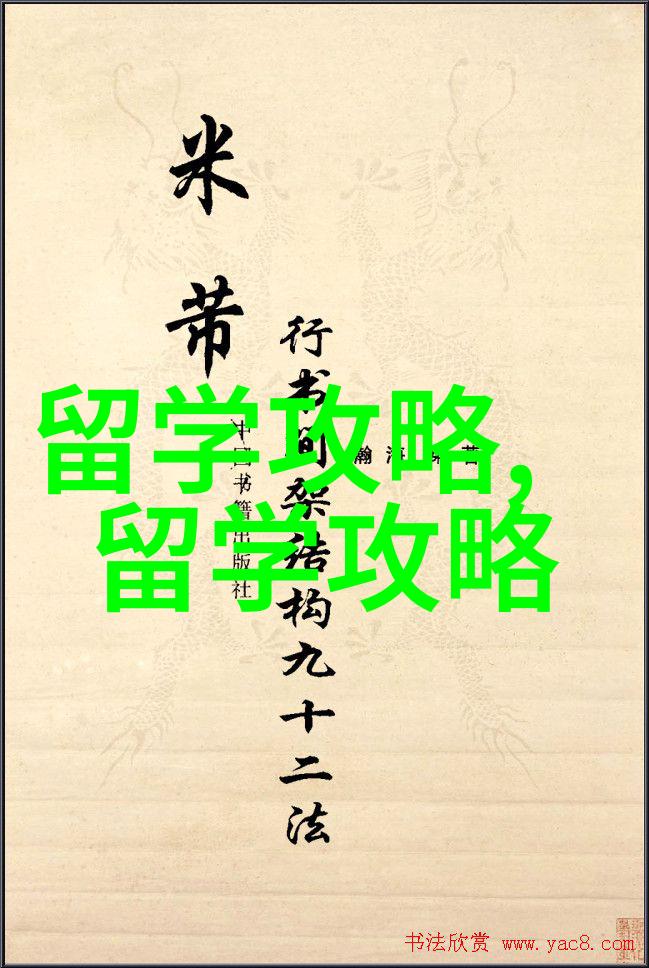 米芾
行书间架结构九十二法
瀚海
著
中国书籍出版社
留学攻略,
留学攻略
书法欣赏 www.yac8.com